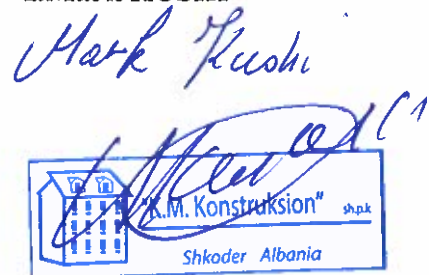 Mark Kushi
"K.M. Konstruksion" sh.p.k
Shkoder Albania